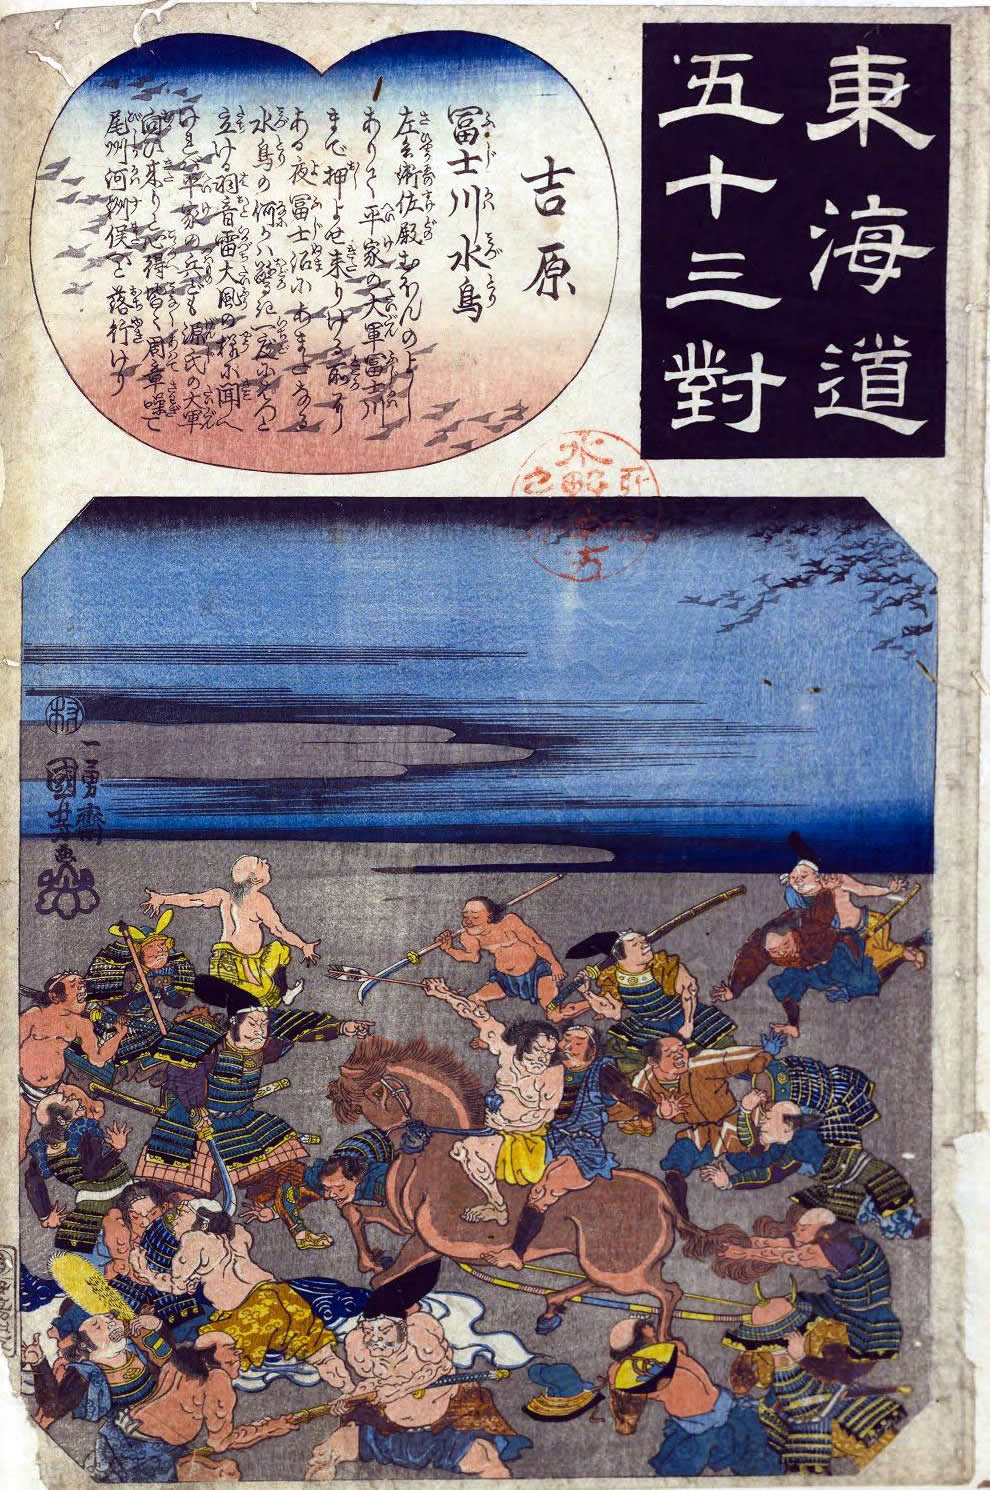 東海道
五十三對
吉原
冨士川水鳥
左兵衛佐殿むほんのよし
ありて平家の大軍冨士川
まで押よせ来りける所に
ある夜冨士沼にあまたある
水鳥の何にかは驚き一度にはつと
立ける羽音雷大風の様に聞へ
ければ平家の兵ども源氏の大軍
向ひ来りと心得皆〱周章噪て
尾州河州俣へと落行けり
村
一勇齋
國芳画